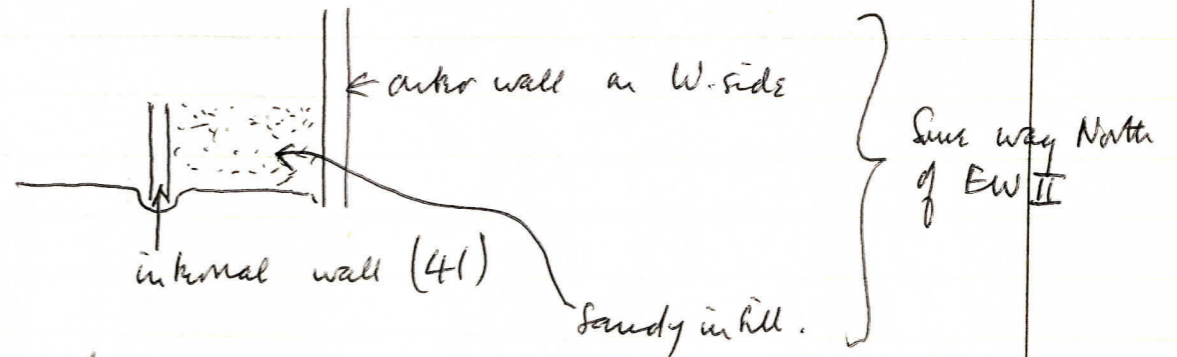 outer wall on W. side
Some way North
of EW II
internal wall (41)
Sandy infill.